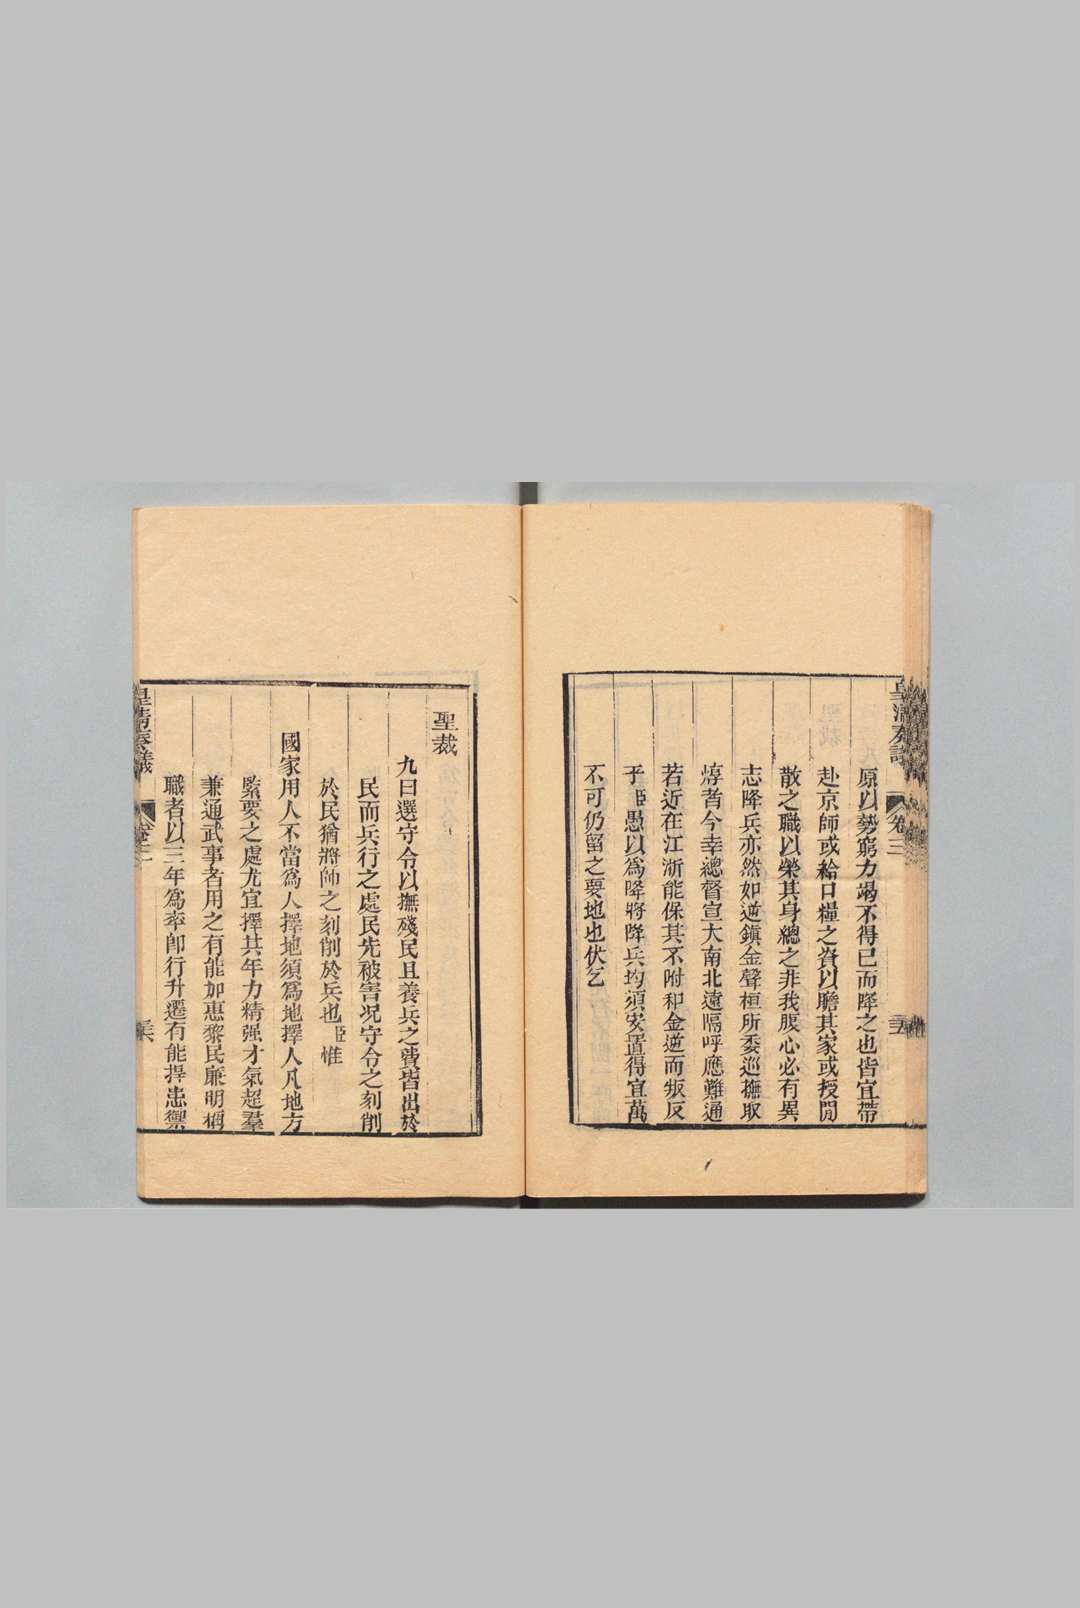 皇清奏議
卷三
原以勢窮力竭不得已而降之也皆宜帶
赴京師或給口糧之資以贍其家或授閒
散之職以榮其身總之非我腹心必有異
志降兵亦然如逆鎮金聲桓所委巡撫取
惇者今幸總督宣大南北遠隔呼應難通
若近在江浙能保其不附和金逆而叛反
乎臣愚以爲降將降兵均須安置得宜萬
不可仍留之要地也伏乞
聖裁
九曰選守令以撫殘民且養兵之費皆出於
民而兵行之處民先被害况守令之刻削
於民猶將帥之刻削於兵也臣惟
國家用人不當爲人擇地須爲地擇人凡地方
緊要之處尤宜擇其年力精强才氣超羣
兼通武事者用之有能加惠黎民廉明稱
職者以三年爲率卽行升遷有能捍患禦
皇清奏議
卷三